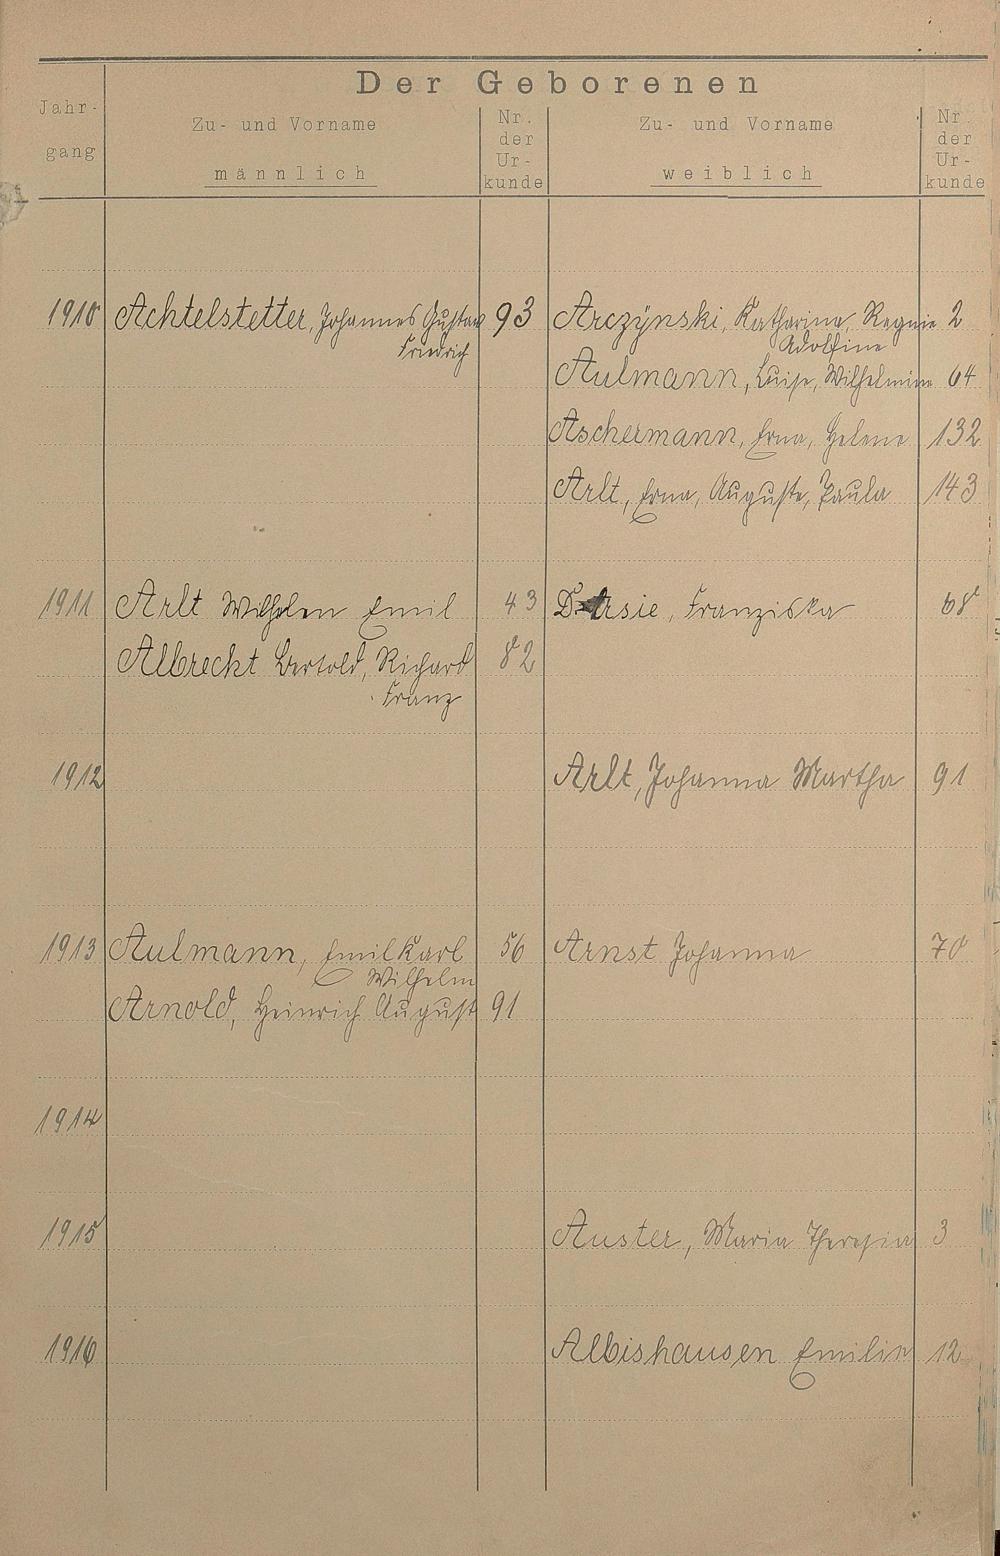 Der Geborenen
Jahr-
gang
Zu- und Vorname
männlich
Nr.
der
Ur-
kunde
Zu- und Vorname
weiblich
Nr.
der
Ur-
kunde
1910 Achtelstetter, Johannes Gustav 93 Arczÿnski, Katharina, Regnie 2
Friedrich Adolfine
Aulmann, Luise, Wilhelmine 64
Aschermann, Erna, Helene 132
Arlt, Erna, Auguste, Paula 143
1911 Arlt Wilhelm Emil 43 Franziska 68
Albrecht Bertold, Richard 82
Franz
1912 Arlt, Johanna Martha 91
1913 Aulmann, Emil Karl 56 Arnst Johanna 70
Wilhelm
Arnold, Heinrich August 91
1914
1915 Auster, Maria Theresia 3
1916 Albishausen Emilie 12